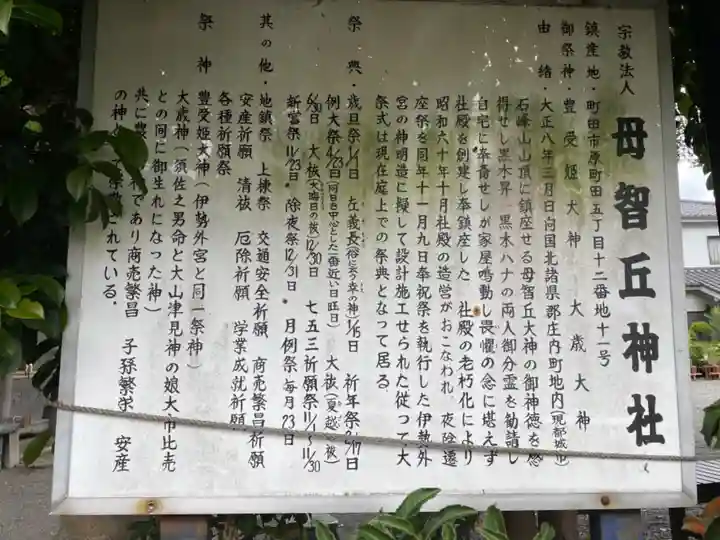 宗教法人 母智丘神社
鎮座地・町田市原町田五丁目十二番地十一号
御祭神・豊受姫大神 大歳大神
由緒・大正八年三月日向国北諸県郡庄内町地内(現都城市)
石峰山山頂に鎮座せる母智丘大神の御神徳を感
得せし黒木昇 黒木ハナの両人御分霊を勧請し
自宅に奉斎せしが家屋鳴動し畏懼の念に堪えず
社殿を創建し奉鎮座した 社殿の老朽化により
昭和六十年十月社殿の造営がおこなわれ 夜陰遷
座祭を同年十一月九日奉祝祭を執行した伊勢外
宮の神明造に擬して設計施工せられた従って大
祭式は現在庭上での祭典となって居る
祭典・歳旦祭1/1日 丘義長(俗に云う幸の神)1/15日 祈年祭2/17日
例大祭4/23日(同日を中心とした一番近い日曜日) 大祓(夏越の祓)
6/30日 大祓(大晦日の祓)12/30日 七五三祈願祭11/1〜11/30
新嘗祭11/23日 除夜祭12/31日 月例祭毎月23日
其の他・地鎮祭 上棟祭 交通安全祈願 商売繁昌祈願
安産祈願 清祓 厄除祈願 学業成就祈願
各種祈願祭
祭神 豊受姫大神(伊勢外宮と同一祭神)
大歳神(須佐之男命と大山津見神の娘大市比売
との間に御生れになった神)
共に であり商売繁昌 子孫繁栄 安産
の神として されている。